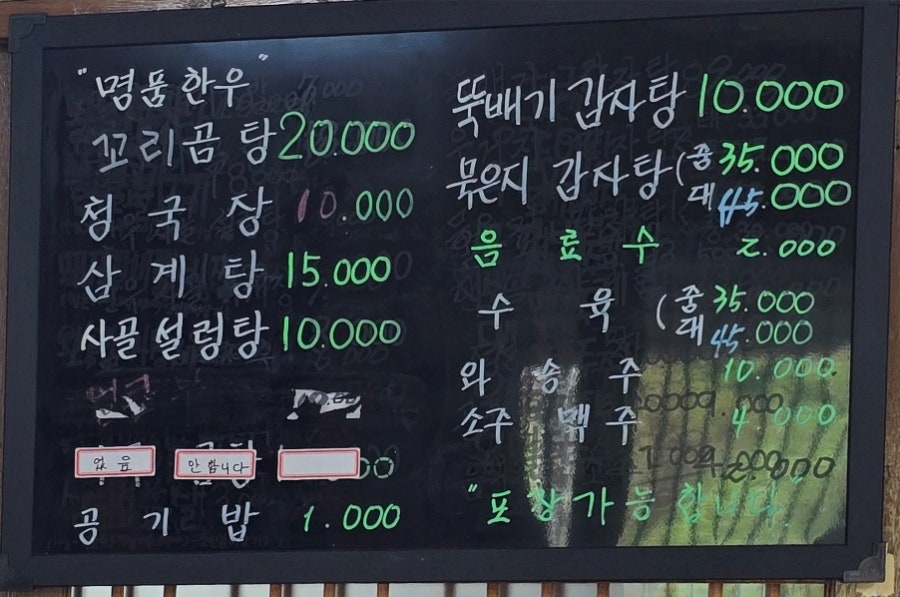 "명품한우"
꼬리곰탕 20.000
청국장 10.000
삼계탕 15.000
사골설렁탕 10.000
없음 안합니다
공기밥 1.000
뚝배기 감자탕 10.000
묵은지 감자탕 (중 35.000
대 45.000
음료수 2.000
수육 (중 35.000
대 45.000
와송주 10.000
소주 맥주 4.000
"포장가능합니다"